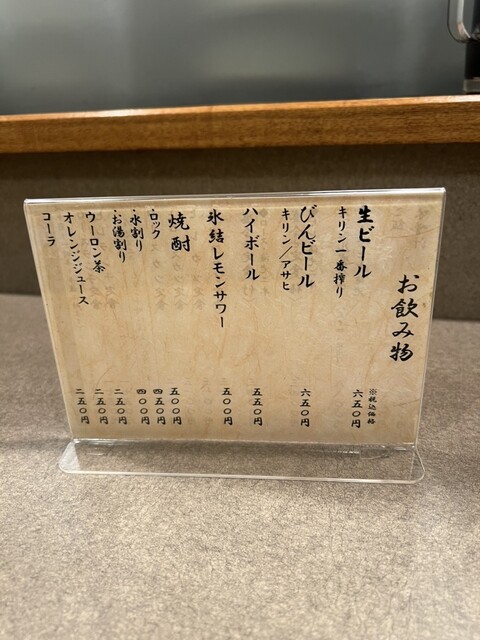 お飲み物
※税込価格
生ビール 六五〇円
キリン一番搾り
びんビール 六五〇円
キリン／アサヒ
ハイボール 五五〇円
氷結レモンサワー 五〇〇円
焼酎
・ロック 五〇〇円
・水割り 四五〇円
・お湯割り 四〇〇円
ウーロン茶 二五〇円
オレンジジュース 二五〇円
コーラ 二五〇円